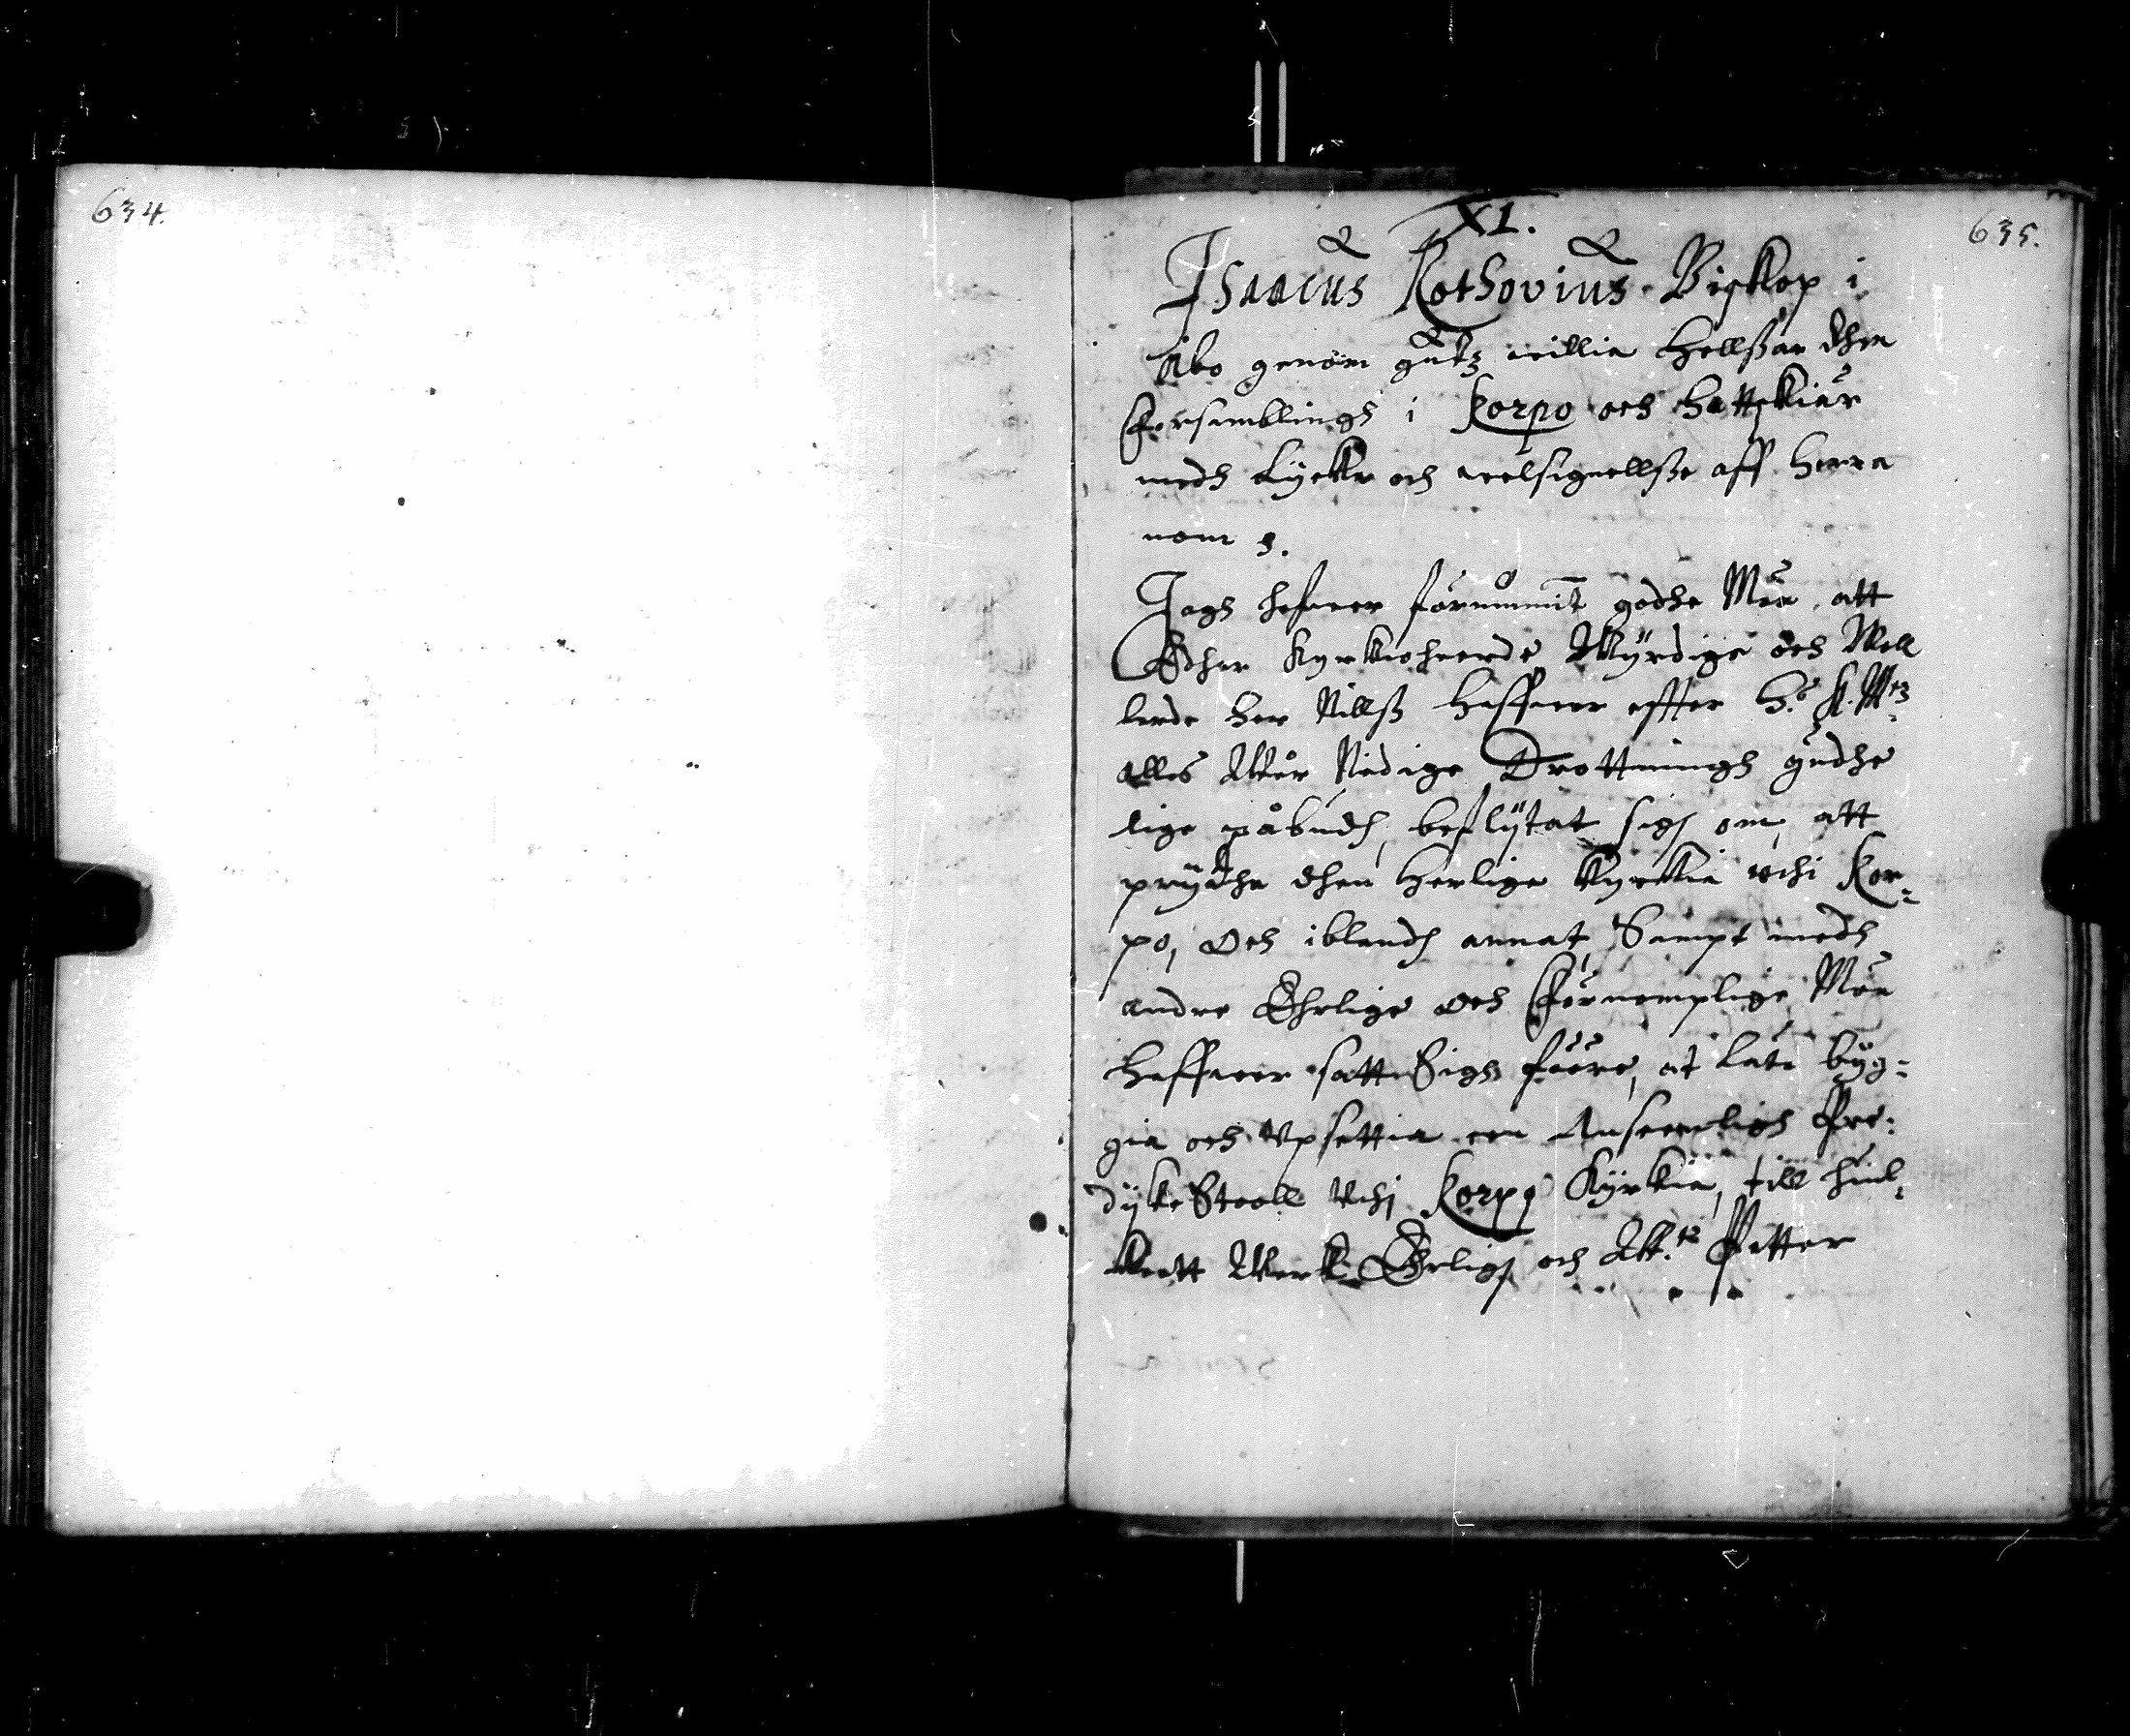 634.
XI.
635.
Isaacus Rothovius Biskop i
Åbo genom gudz willia Hellßar dhen
Församblingh i Korpo och Hattskiär
medh Lycko och welsignellße aff Herra
nom
Jagh hafwer förnummit godhe Män att
Edher Kyrkioheerde Wyrdige och Well
lerde Her Nillß Haffwer effter H. K. Mtz
alles Wår Nådige Drottningh gudhe
lige påbudh, beflijtat sigh om, att
prydha dhen Herlige Kyrkia uthi Kor-
po, Och iblandh annat, Sampt medh
andre Ehrlige och Förnemplige Män
Haffwer satt Sigh föåre, at lata byg-
gia och Upsettia een Anseenligh Pre-
dijke Stooll Uthj Korpo Kyrkia, till huil-
kett Werk Ehrligh och Petter